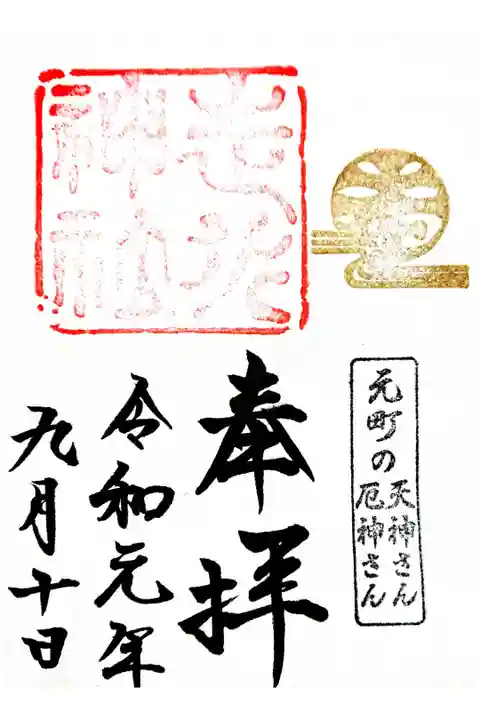 元町の
天神さん
厄神さん
奉拝
走水
神社
令和元年
九月十日